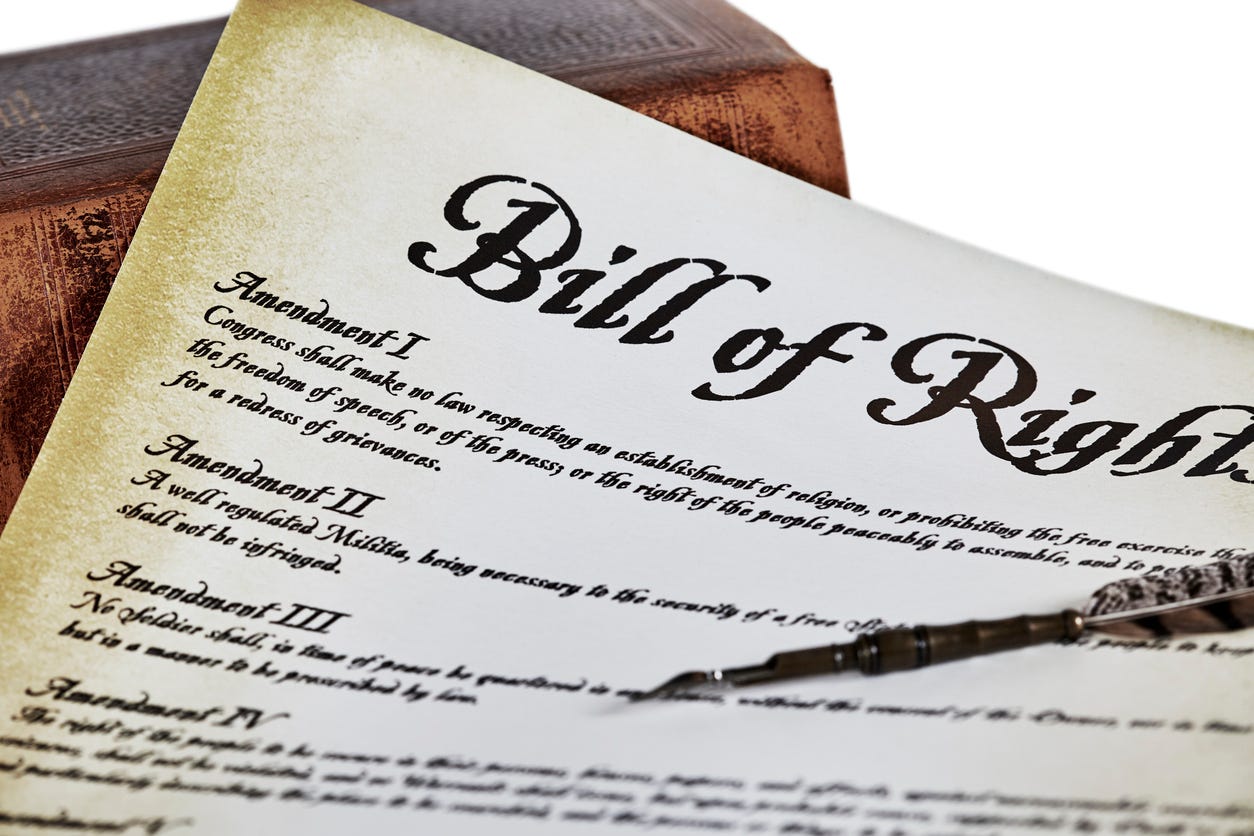 Bill of Rights
Amendment I
Congress shall make no law respecting an establishment of religion, or prohibiting the free exercise
the freedom of speech, or of the press; or the right of the people peaceably to assemble, and to
for a redress of grievances.
Amendment II
A well regulated Militia, being necessary to the security of a free people to keep
shall not be infringed.
Amendment III
No Soldier shall, in time of peace be quartered in without the consent of the Owner, nor in time
but in a manner to be prescribed by law.
Amendment IV
The right of the people to be secure in their persons, houses, papers, and effects, against unreasonable
shall not be violated, and no Warrants shall issue, but upon probable
particularly describing the place to be searched, and the persons or things to be
Amendment V